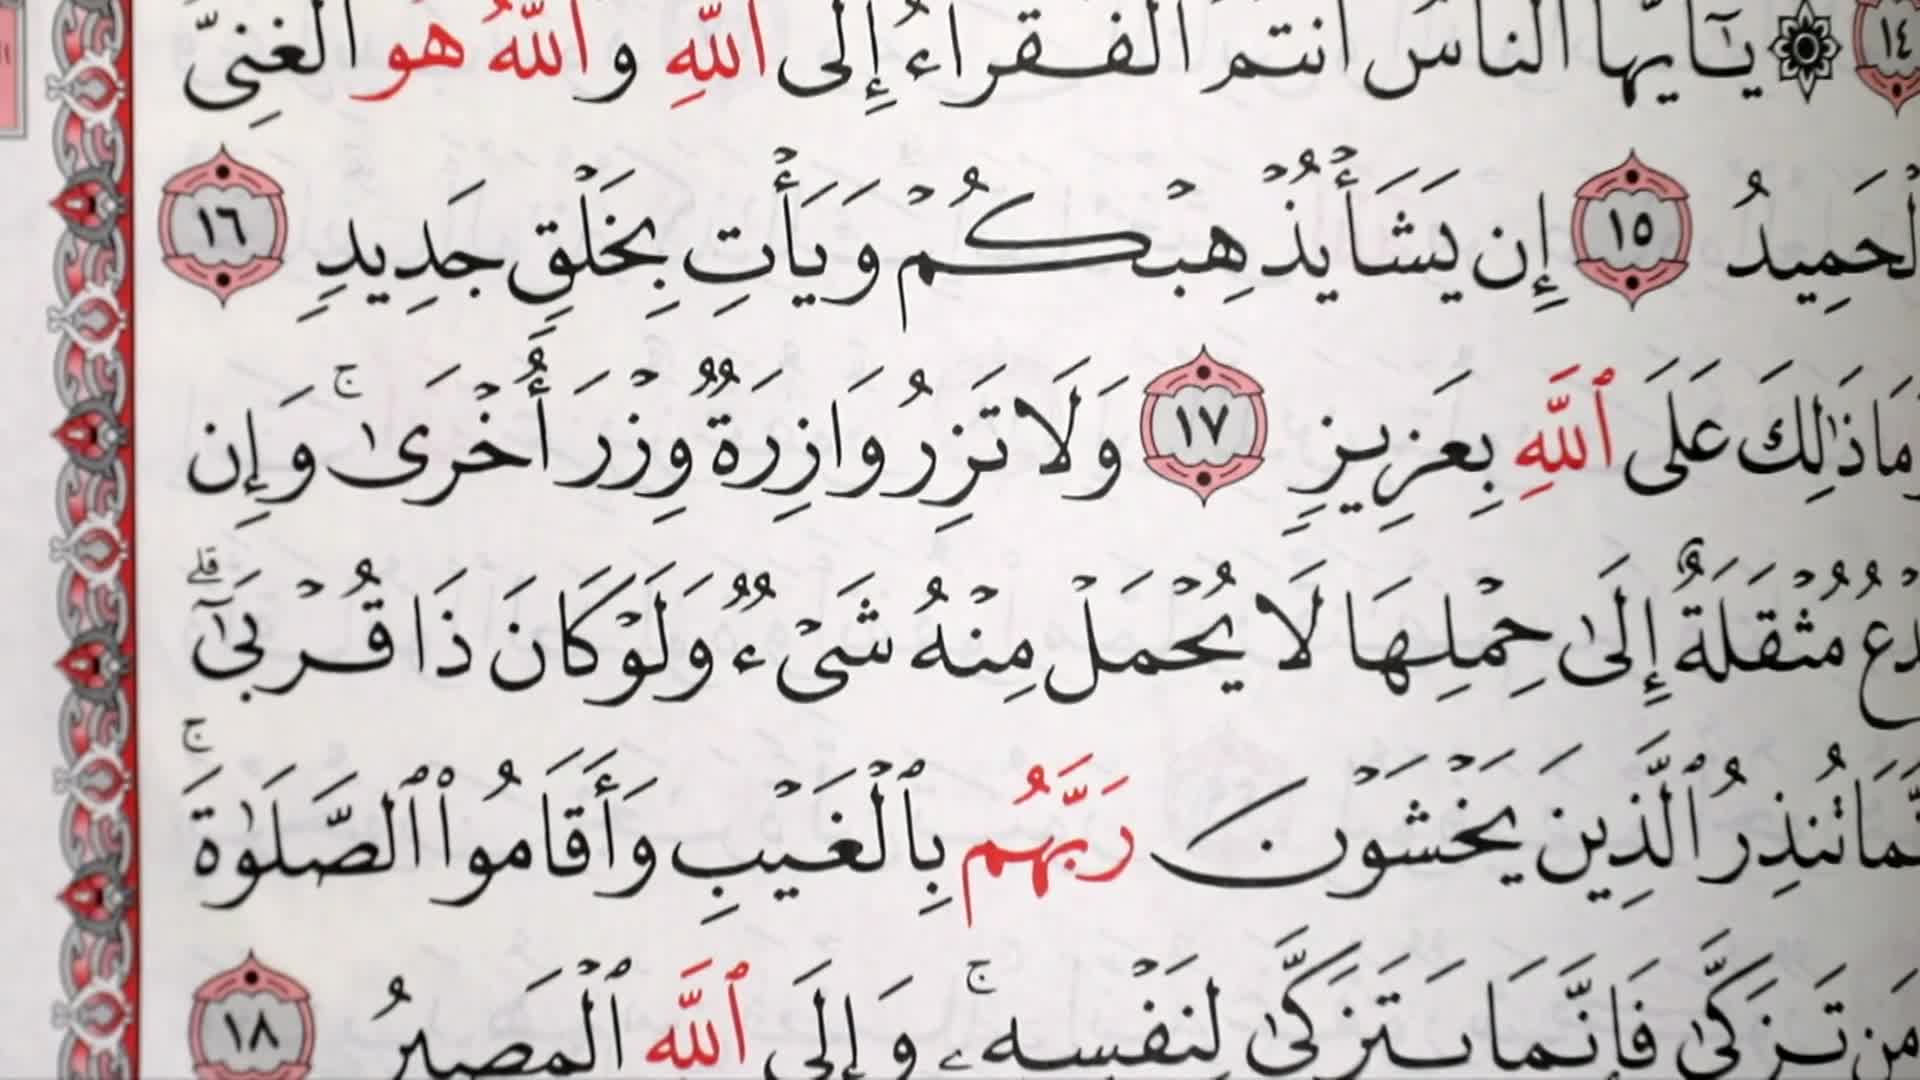 ١٤ ۞ يَٰٓأَيُّهَا ٱلنَّاسُ أَنتُمُ ٱلْفُقَرَآءُ إِلَى ٱللَّهِ وَٱللَّهُ هُوَ ٱلْغَنِىُّ
ٱلْحَمِيدُ ١٥ إِن يَشَأْ يُذْهِبْكُمْ وَيَأْتِ بِخَلْقٍ جَدِيدٍ ١٦
وَمَا ذَٰلِكَ عَلَى ٱللَّهِ بِعَزِيزٍ ١٧ وَلَا تَزِرُ وَازِرَةٌ وِزْرَ أُخْرَىٰ ۚ وَإِن
دْعُ مُثْقَلَةٌ إِلَىٰ حِمْلِهَا لَا يُحْمَلْ مِنْهُ شَىْءٌ وَلَوْ كَانَ ذَا قُرْبَىٰٓ ۗ
نَّمَا تُنذِرُ ٱلَّذِينَ يَخْشَوْنَ رَبَّهُم بِٱلْغَيْبِ وَأَقَامُوا۟ ٱلصَّلَوٰةَ ۚ
مَن تَزَكَّىٰ فَإِنَّمَا يَتَزَكَّىٰ لِنَفْسِهِۦ ۚ وَإِلَى ٱللَّهِ ٱلْمَصِيرُ ١٨